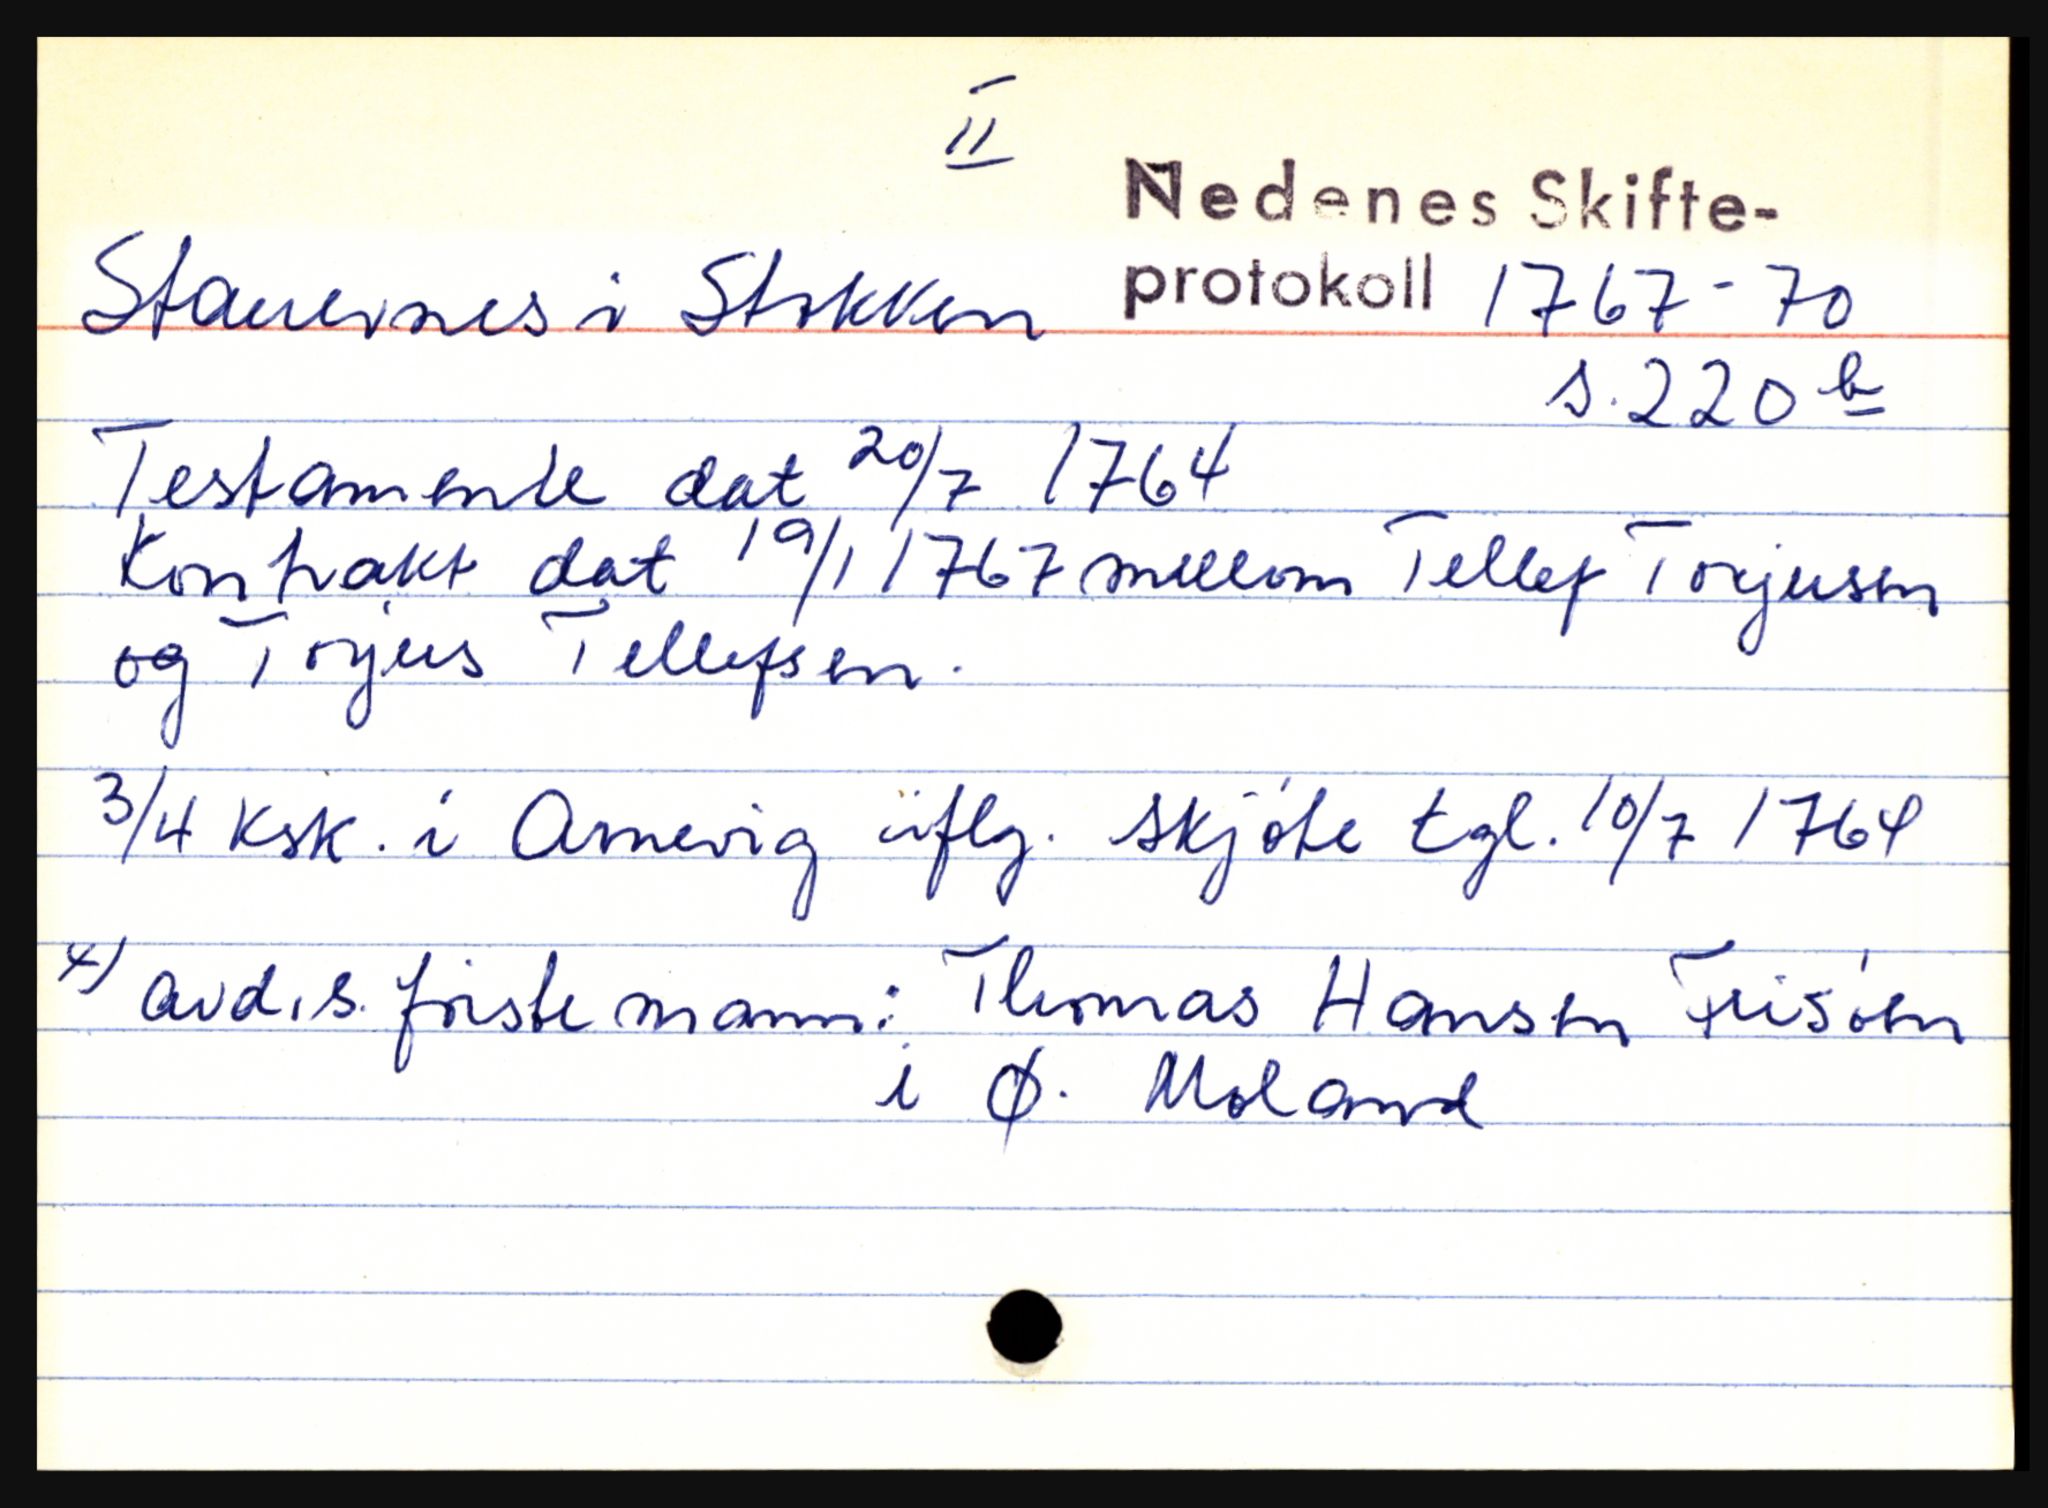 II
Nedenes Skifte-
Stauernes i Stokken protokoll 1767-70
s. 220 b
Testamente dat 20/7 1764
Kontrakt dat 19/1 1767 mellom Tellef Torjusen
og Torjus Tellefsen.
3/4 ksk. i Arnevig iflg. skjöte tgl. 10/7 1764
x) avd.s. förste mann: Thomas Hansen Frisöen
i Ø. Moland